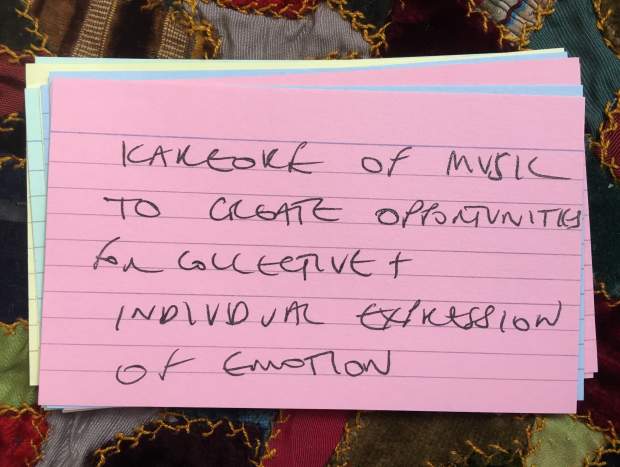 KAREOKE OF MUSIC
TO CREATE OPPORTUNITIES
for COLLECTIVE +
INDIVDUAL EXPRESSION
OF EMOTION